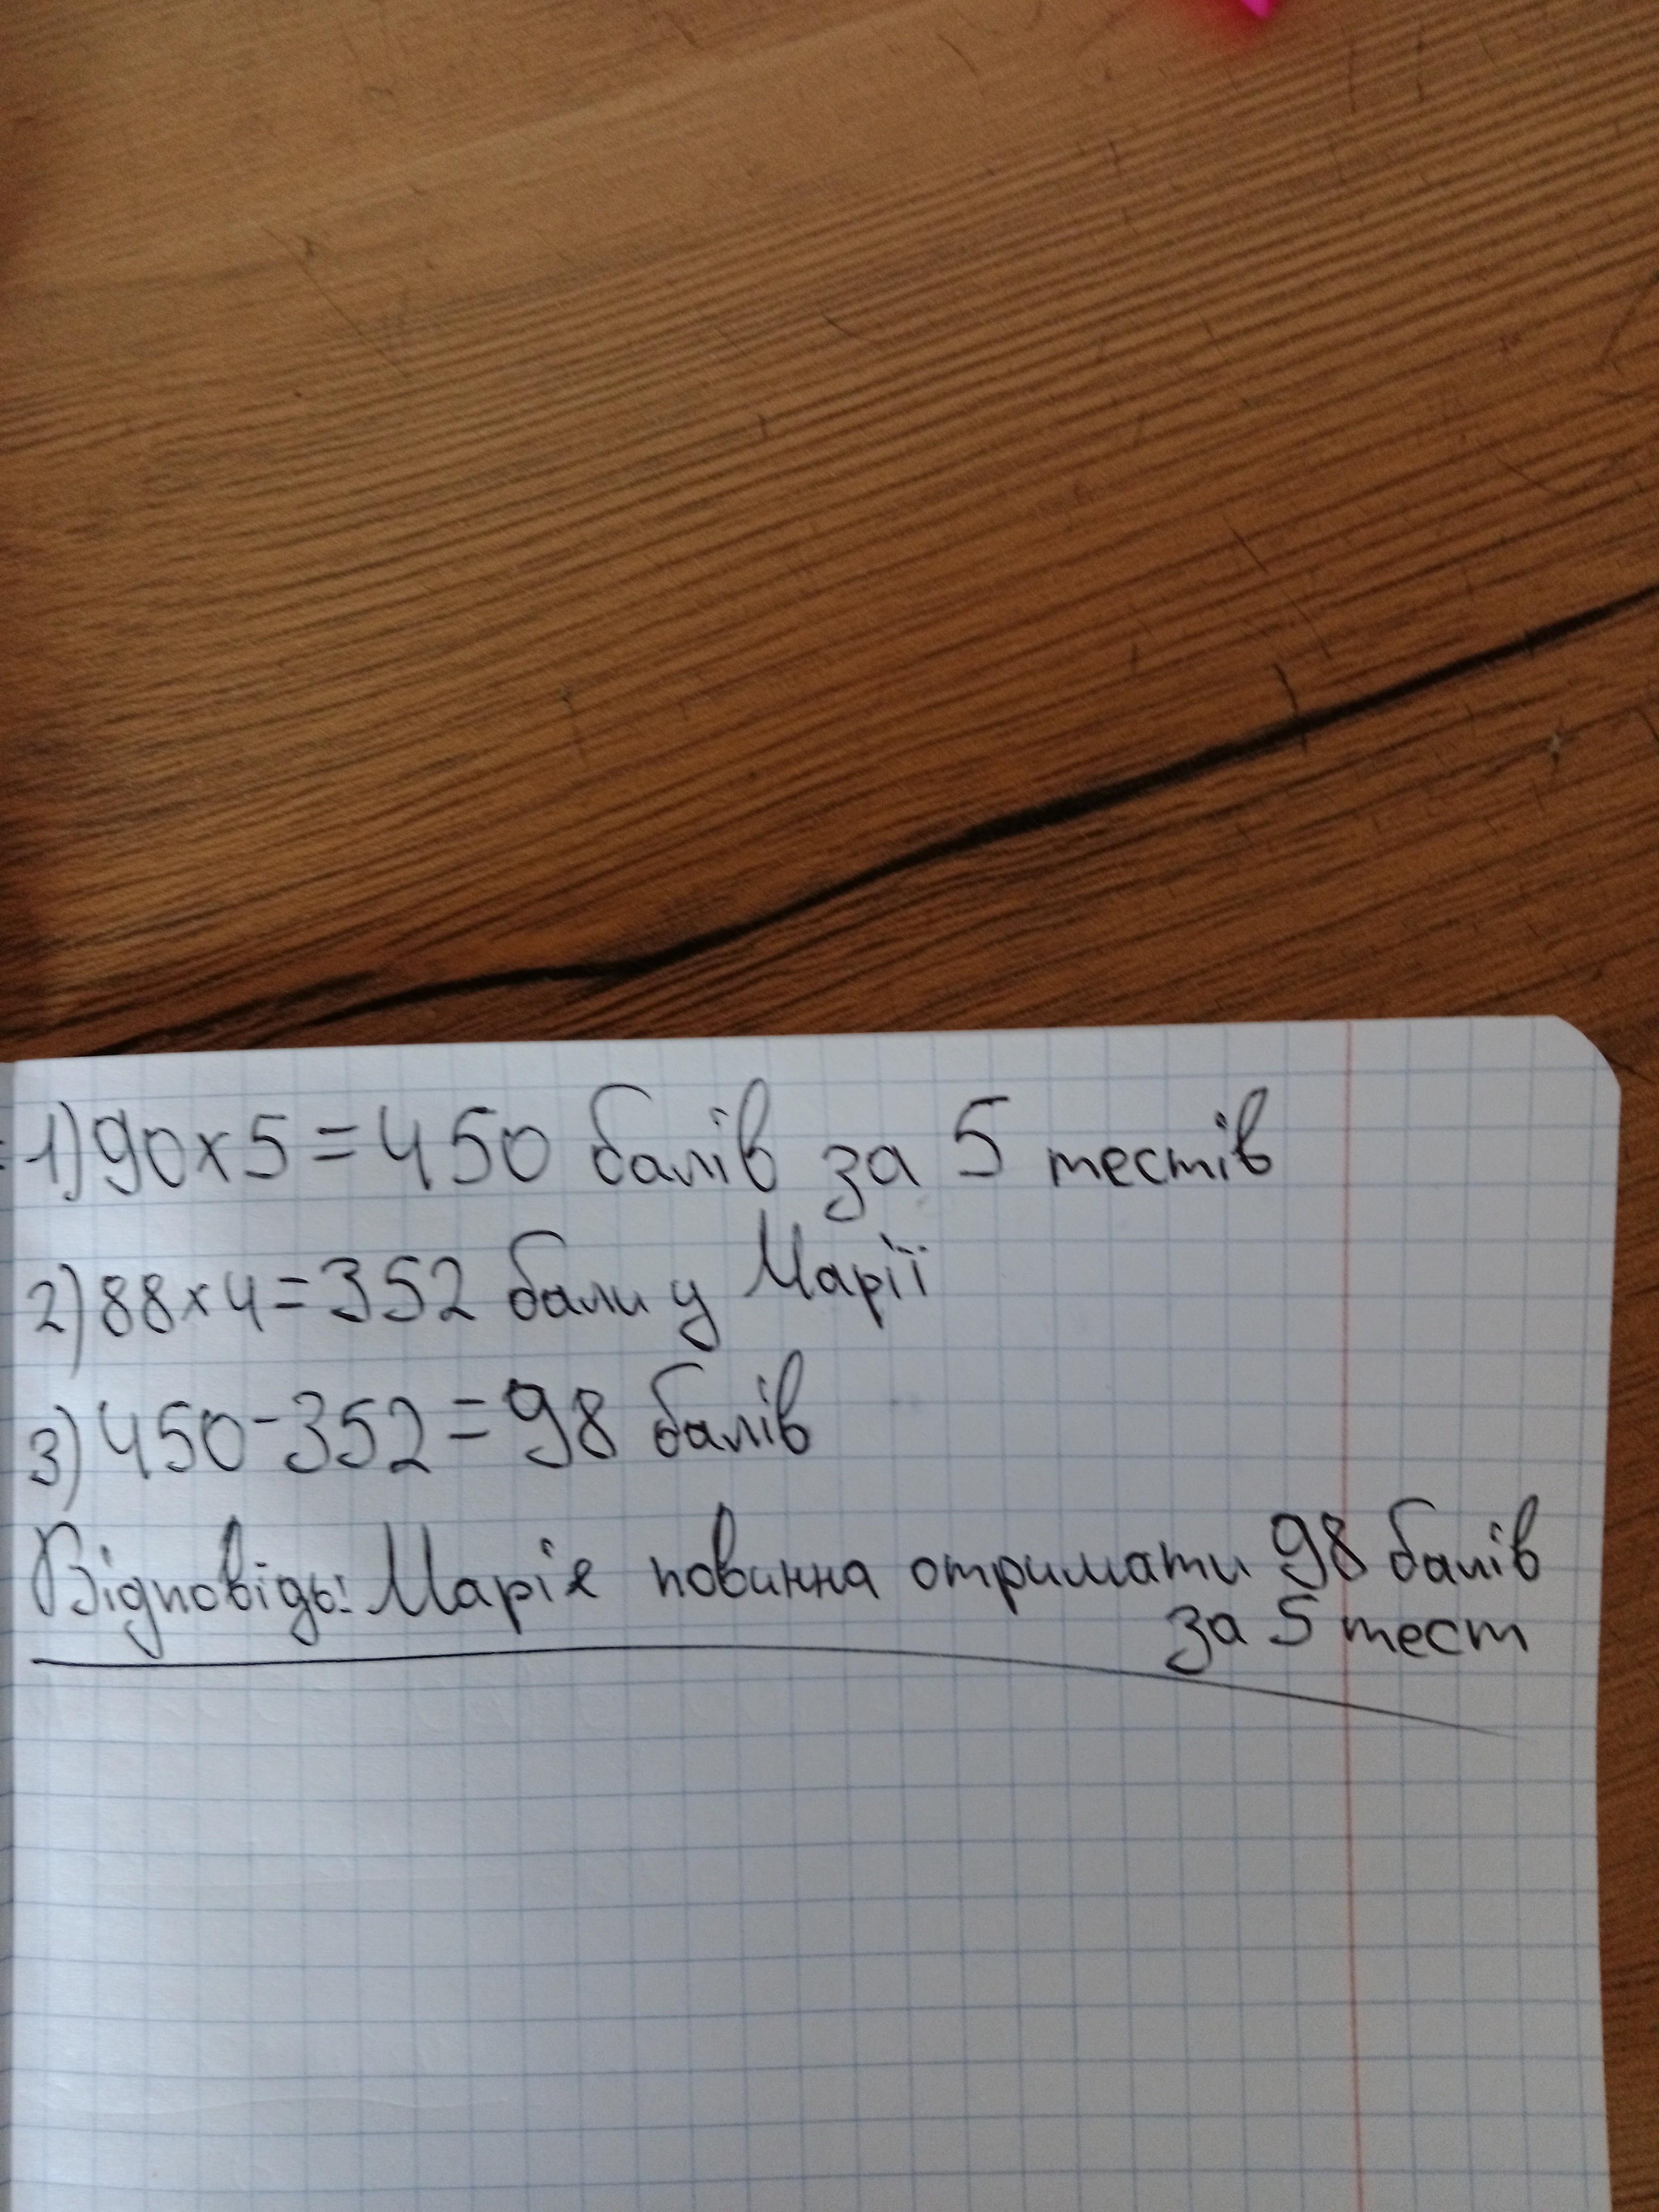 1) 90 x 5 = 450 балів за 5 тестів
2) 88 x 4 = 352 бали у Марії
3) 450 - 352 = 98 балів
Відповідь: Марія повинна отримати 98 балів
за 5 тест